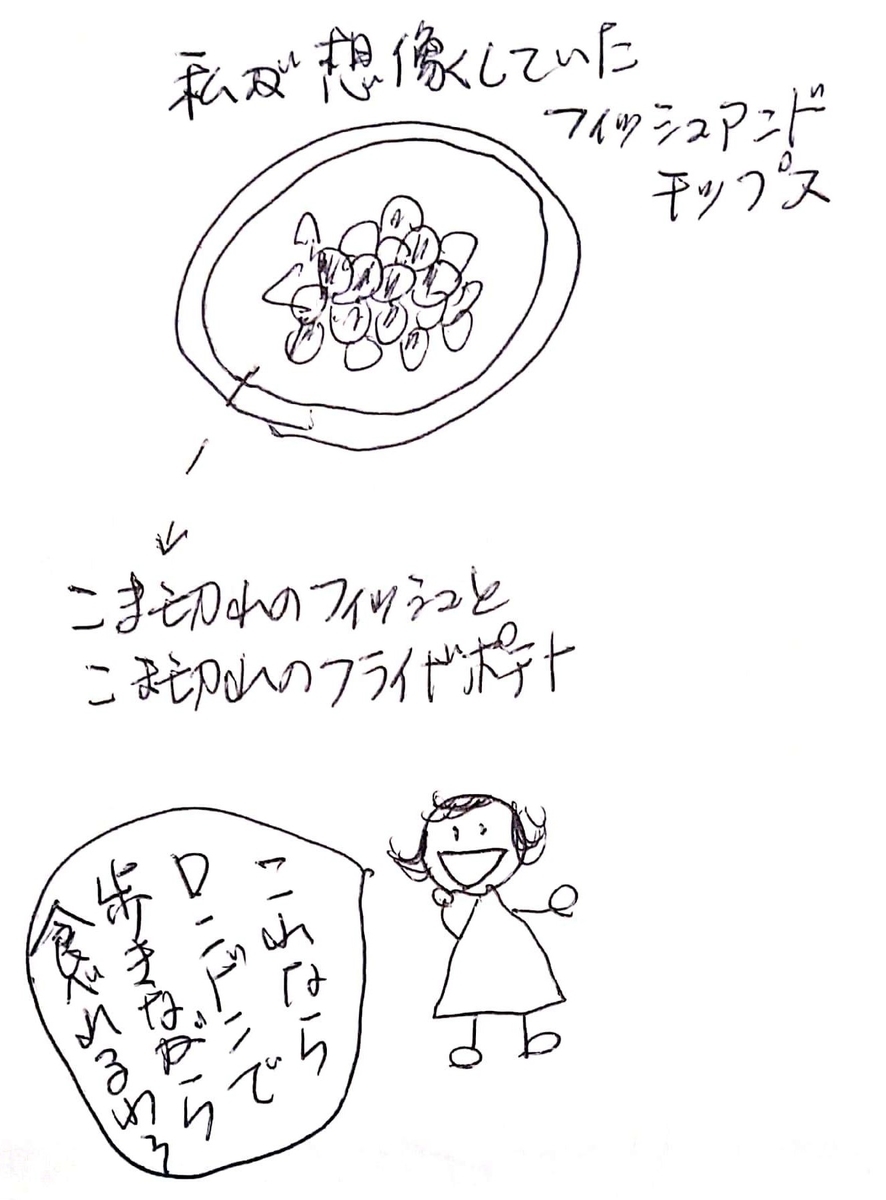 私が想像していた
フィッシュアンド
チップス
こま切れのフィッシュと
こま切れのフライドポテト
これなら
ロンドンで
歩きながら
食べれるわね